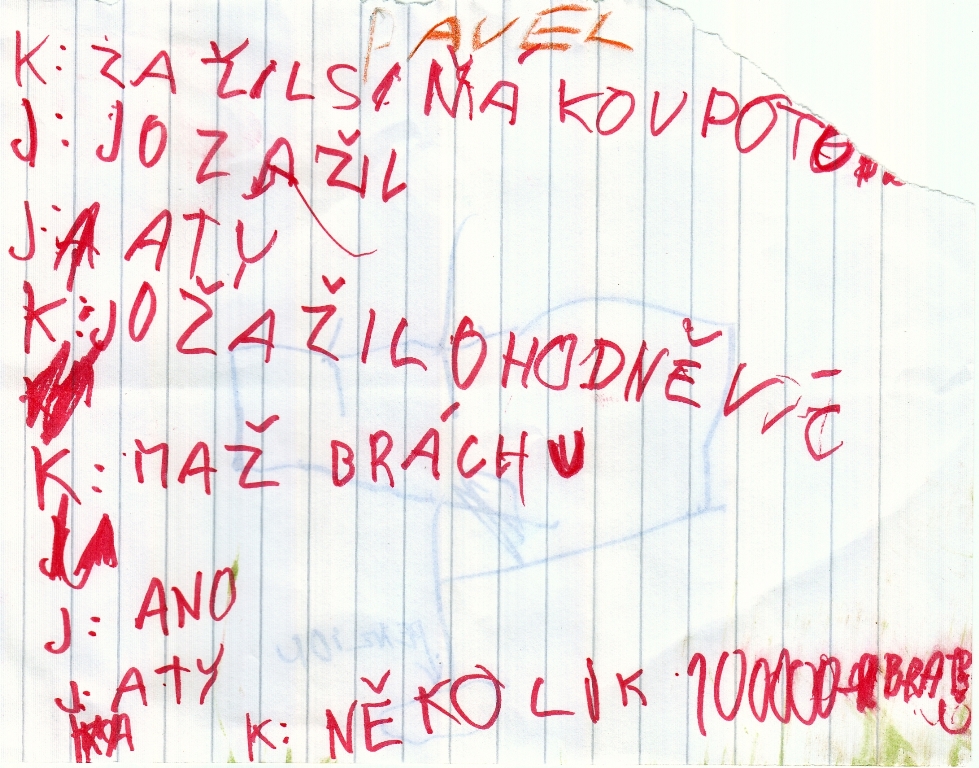 PAVEL
K: ZAŽIL SI NÁKOU POTO..
J: JO ZAŽIL
J: A TY
K: JO ŽAŽIL OHODNĚ VÍC
K: MAŽ BRÁCHU
J: ANO
J: A TY
K: NĚKOLIK 100000 BRATRŮ